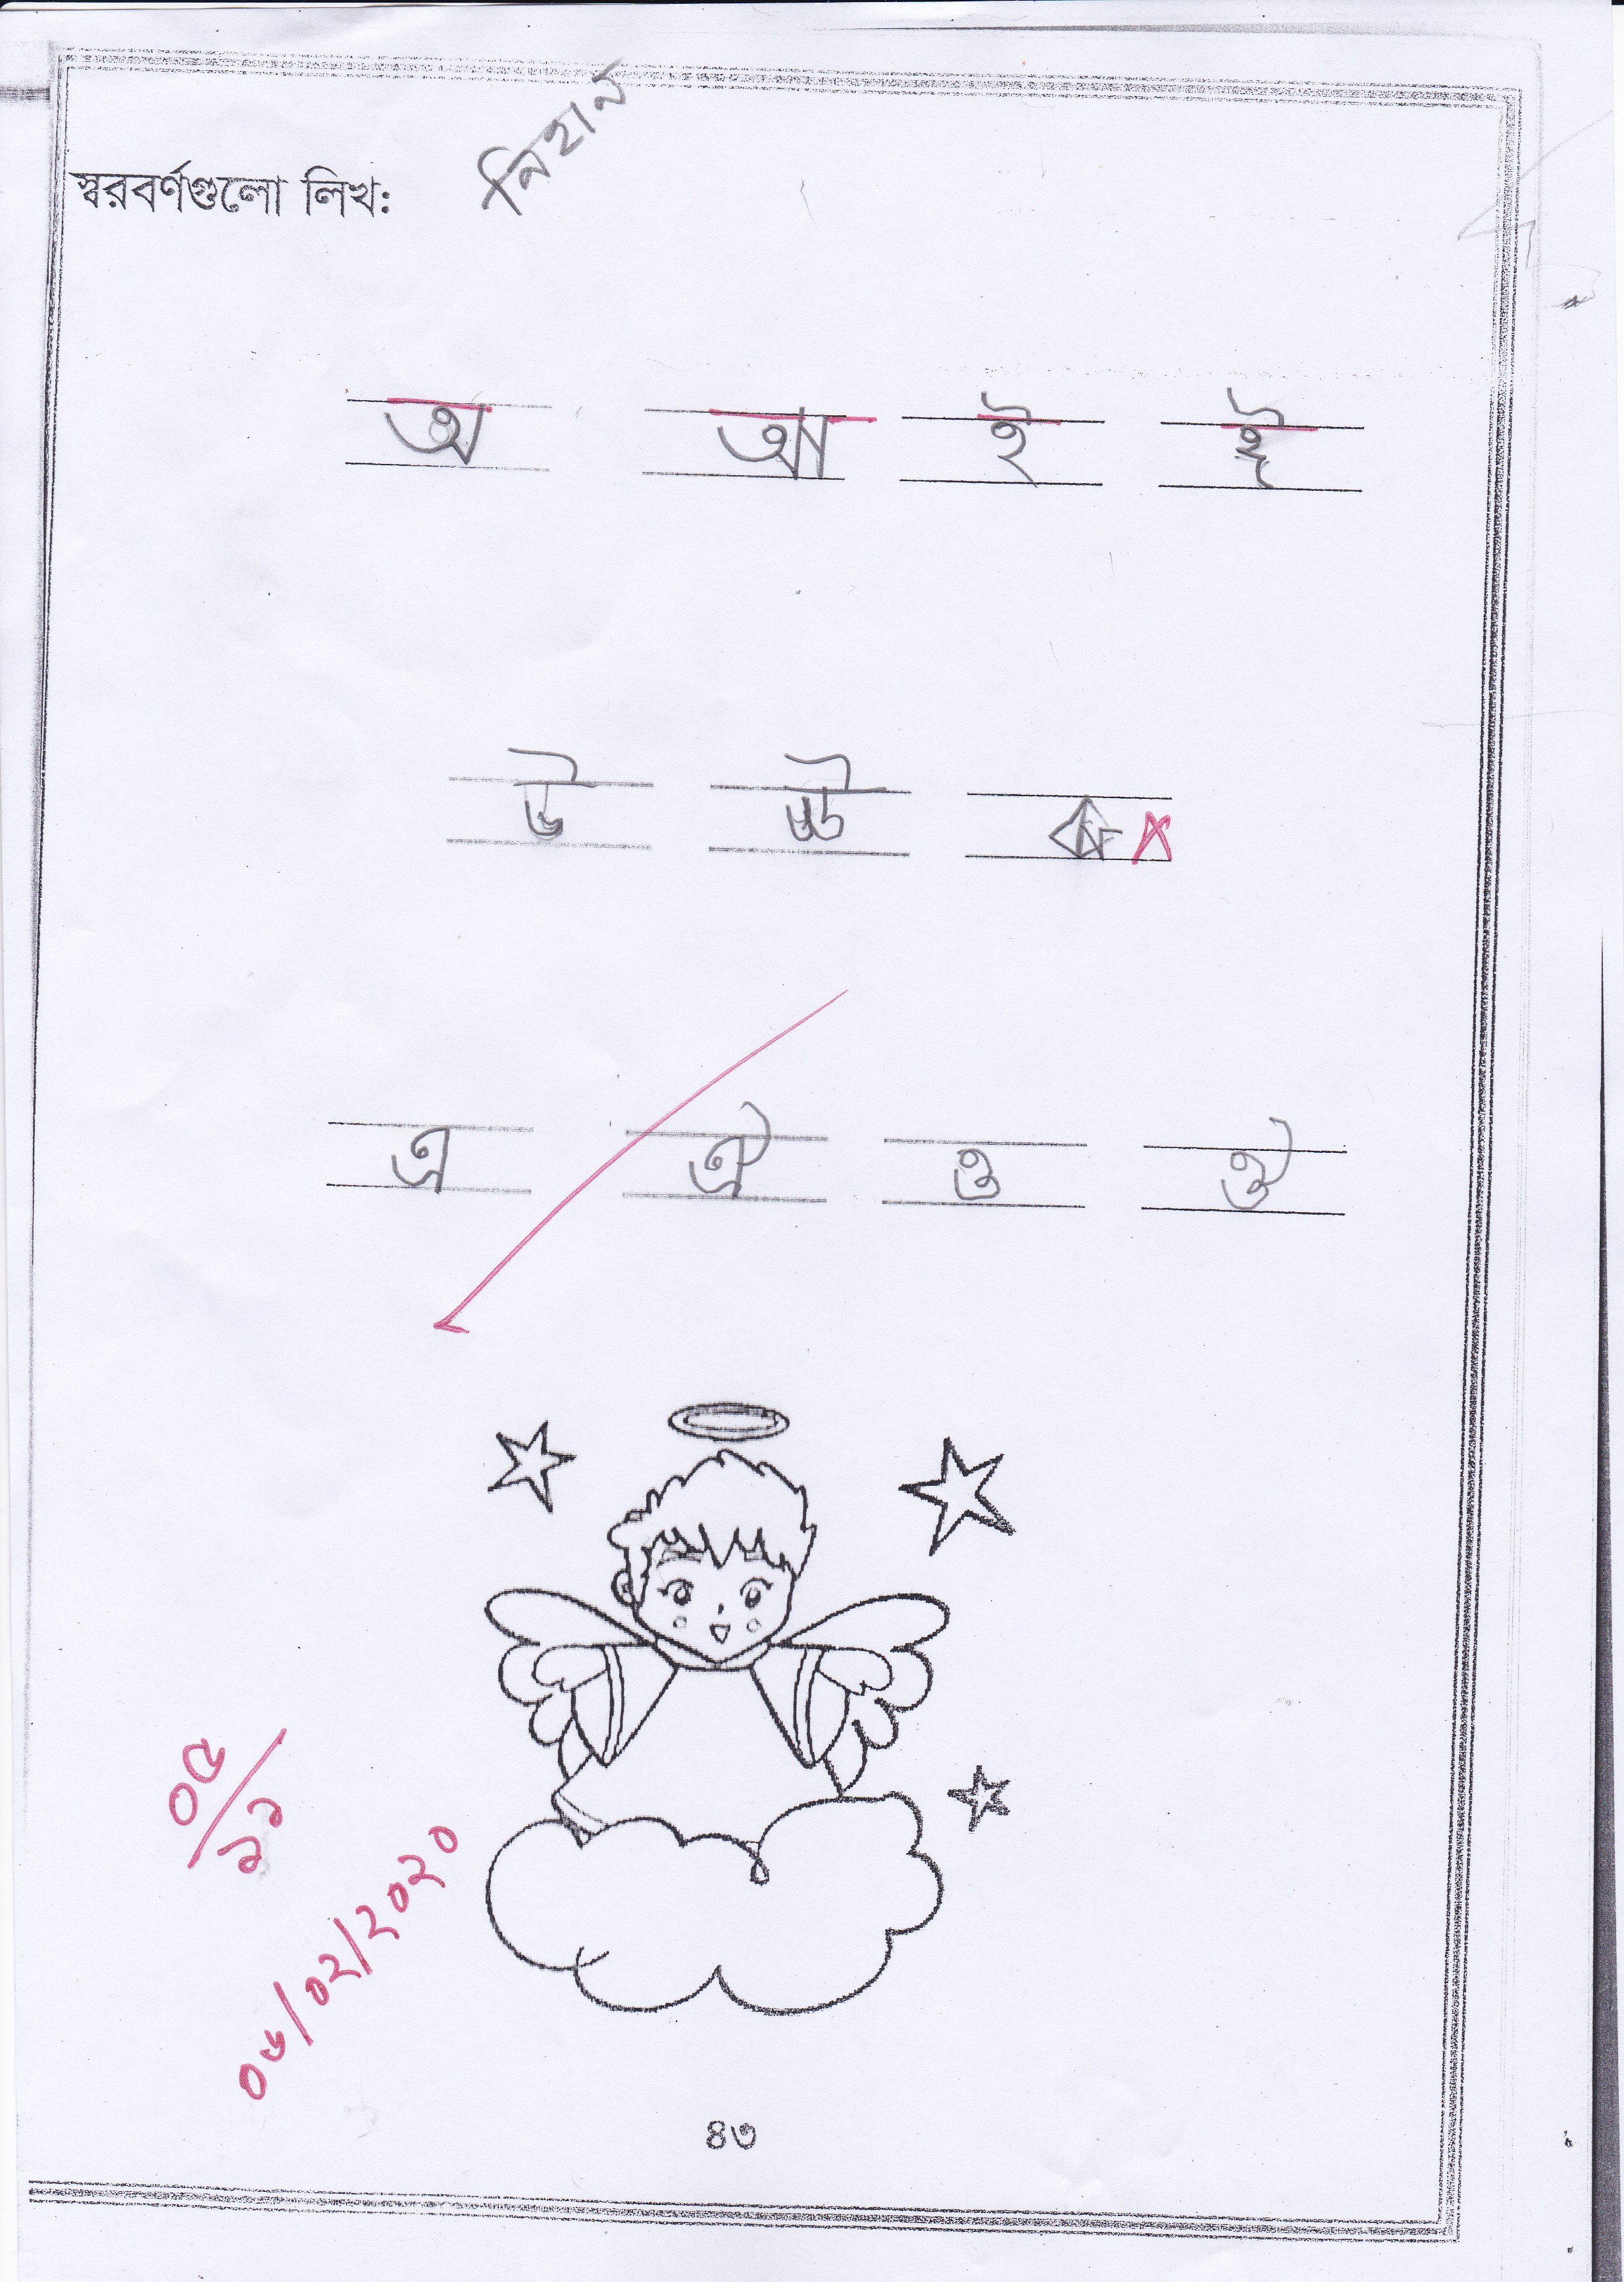 স্বরবর্ণগুলো লিখ:
নিহান
অ আ ই ঈ
উ ঊ ঋ
এ ঐ ও ঔ
০৫/১১
০৬/০২/২০২০
৪৩